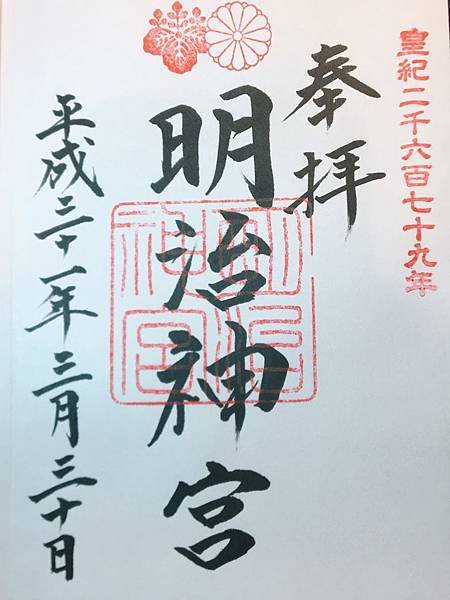 皇紀二千六百七十九年
奉拝
明治神宮
明治
神宮
平成三十一年三月三十日